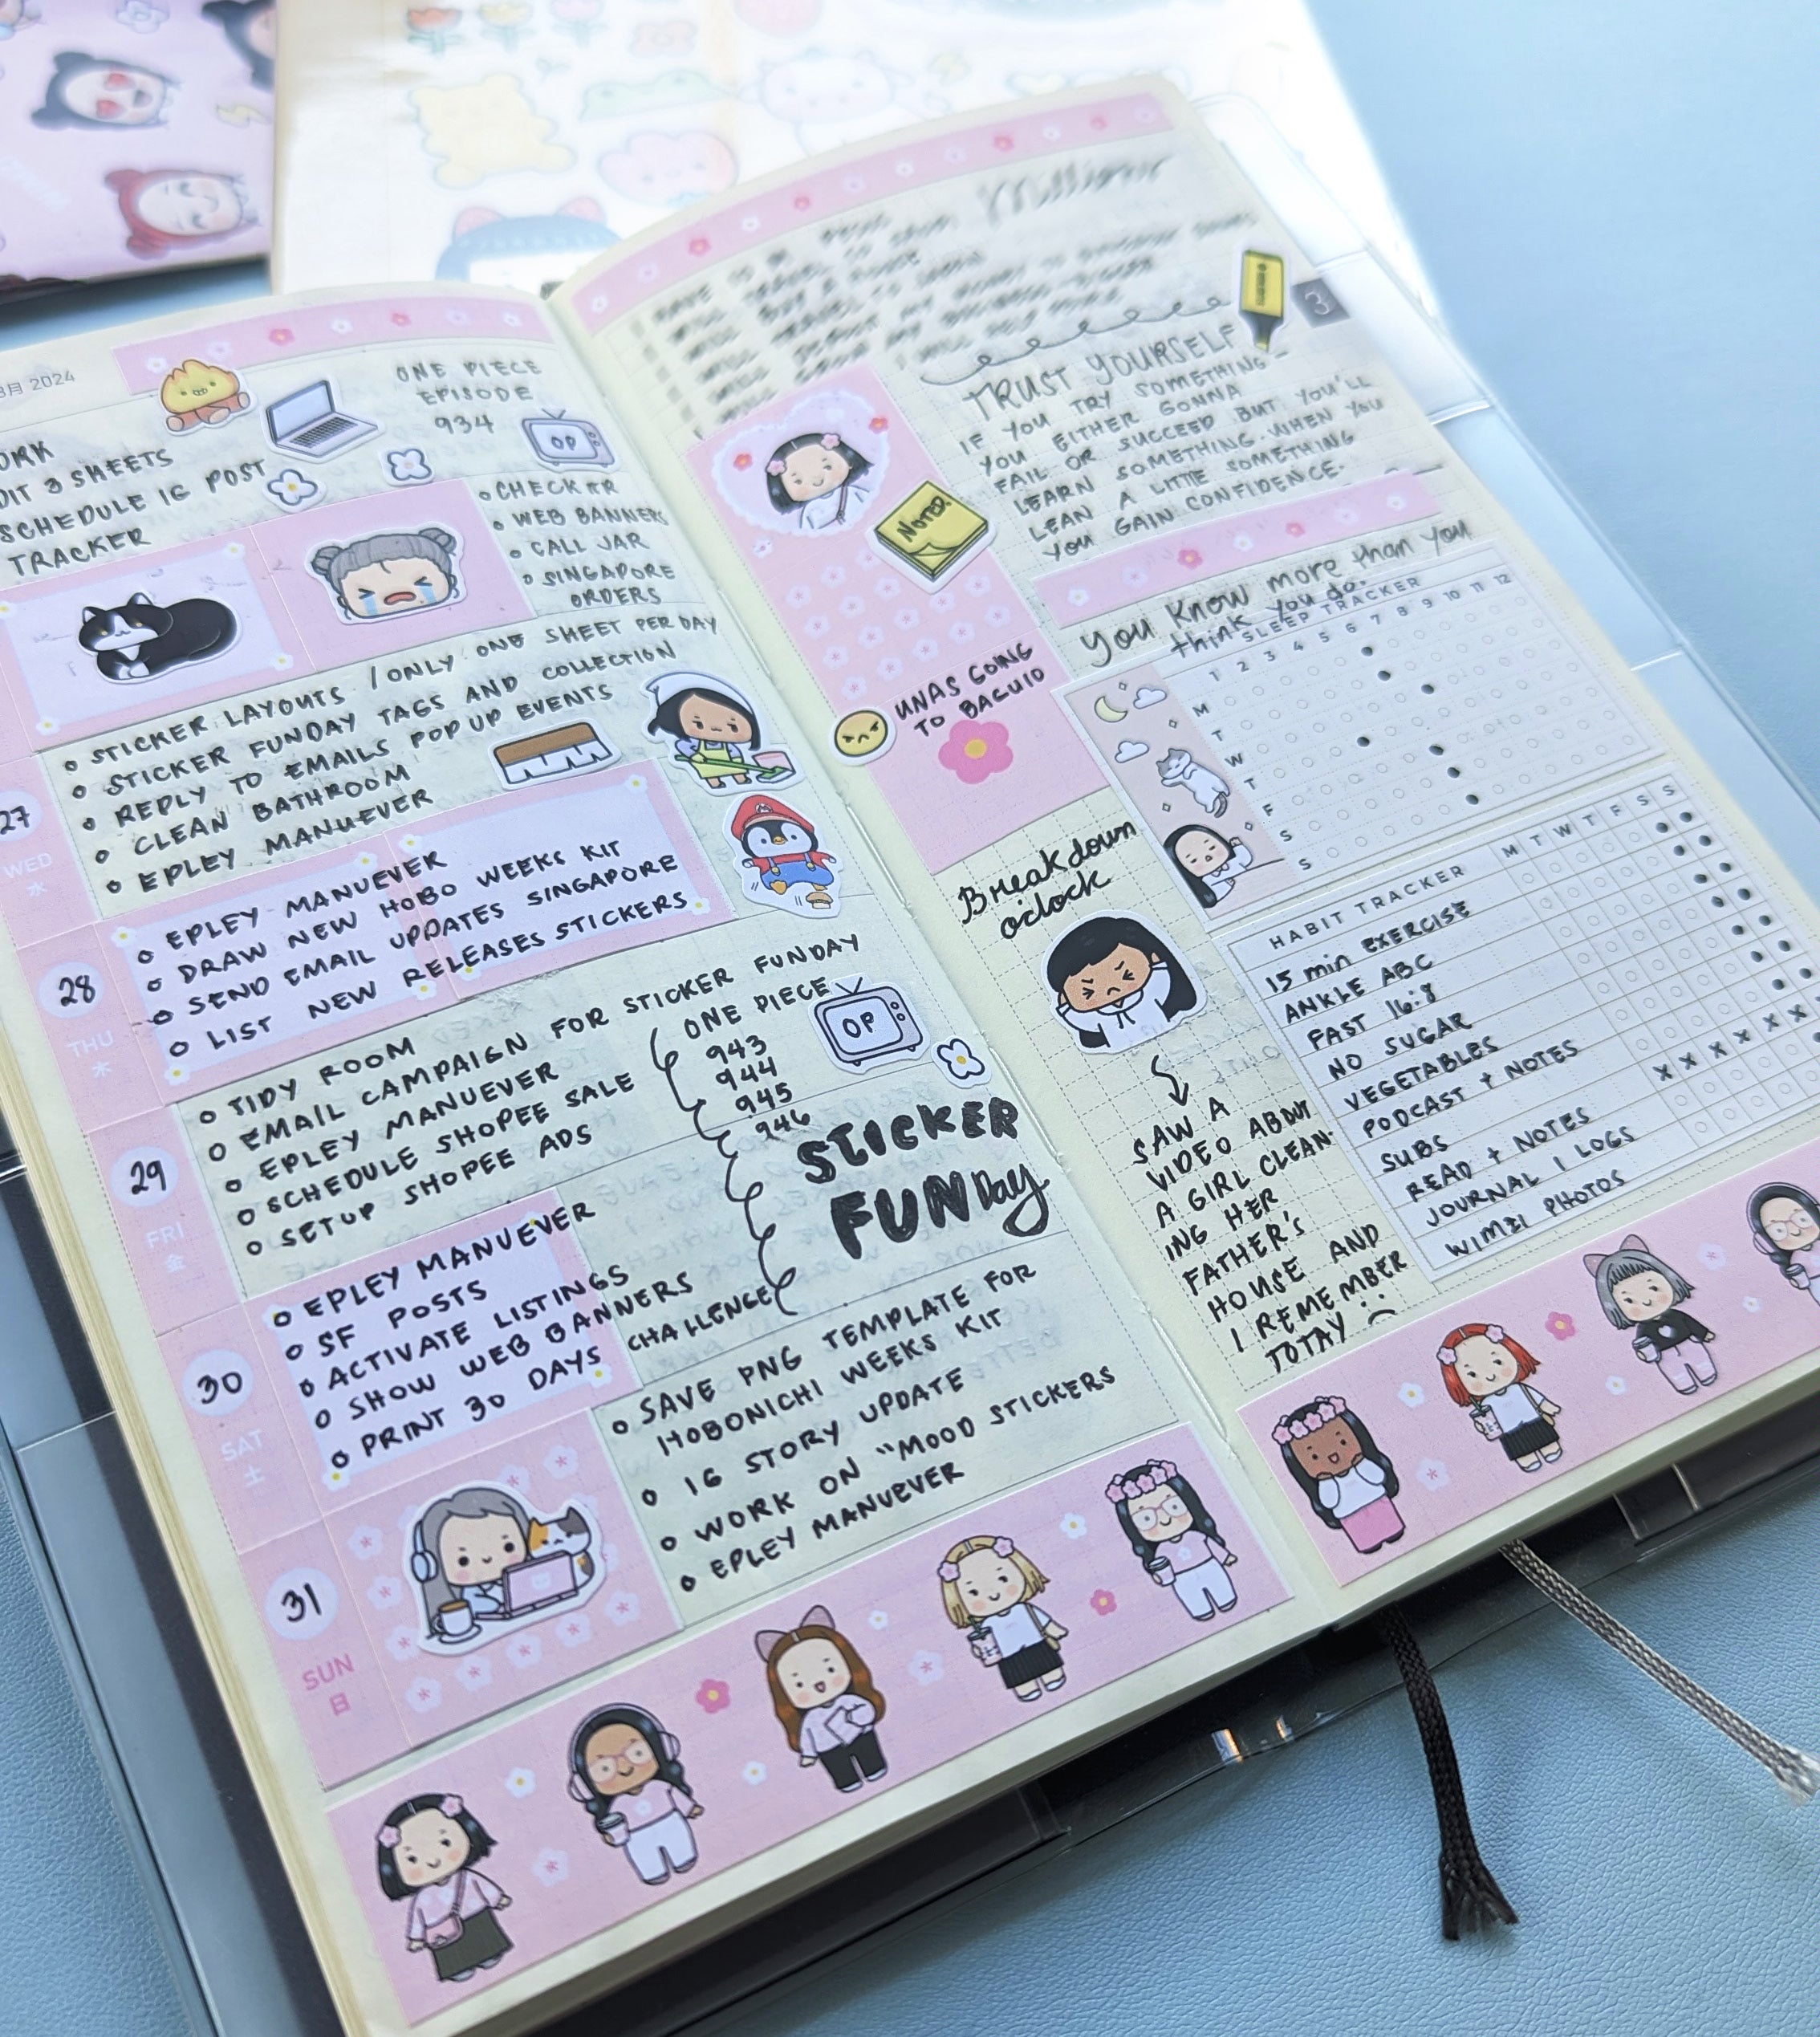 3月 2024
ONE PIECE
EPISODE
934
OP
3 SHEETS
SCHEDULE IG POST
TRACKER
CHECK
WEB BANNERS
CALL JAR
SINGAPORE
ORDERS
27
WED
水
STICKER LAYOUTS / ONLY ONE SHEET PER DAY
STICKER FUNDAY TAGS AND COLLECTION
REPLY TO EMAILS POP UP EVENTS
CLEAN BATHROOM
EPLEY MANUEVER
28
THU
木
EPLEY MANUEVER
DRAW NEW HOBO WEEKS KIT
SEND EMAIL UPDATES SINGAPORE
LIST NEW RELEASES STICKERS
29
FRI
金
TIDY ROOM
EMAIL CAMPAIGN FOR STICKER FUNDAY
EPLEY MANUEVER
SCHEDULE SHOPEE SALE
SETUP SHOPEE ADS
ONE PIECE
943
944
945
946
OP
STICKER
FUNDay
30
SAT
土
EPLEY MANUEVER
SF POSTS
ACTIVATE LISTINGS
SHOW WEB BANNERS
PRINT 30 DAYS CHALLENGE
31
SUN
日
SAVE PNG TEMPLATE FOR
HOBONICHI WEEKS KIT
IG STORY UPDATE
WORK ON "MOOD STICKERS
EPLEY MANUEVER
3
TRUST YOURSELF
IF YOU TRY SOMETHING
YOU EITHER GONNA
FAIL OR SUCCEED BUT YOU'LL
LEARN SOMETHING. WHEN YOU
LEAN A LITTLE SOMETHING
YOU GAIN CONFIDENCE.
NOTED!
You know more than you
think you do.
UNAS GOING
TO BAGUIO
SLEEP TRACKER
1 2 3 4 5 6 7 8 9 10 11 12
M
T
W
T
F
S
S
Breakdown
o'clock
SAW A
VIDEO ABOUT
A GIRL CLEAN-
ING HER
FATHER'S
HOUSE AND
I REMEMBER
TOTAY
HABIT TRACKER
M T W T F S S
15 min EXERCISE
ANKLE ABC
FAST 16:8
NO SUGAR
VEGETABLES
PODCAST + NOTES
SUBS
x x x x x x
READ + NOTES
JOURNAL | LOGS
WIMZI PHOTOS